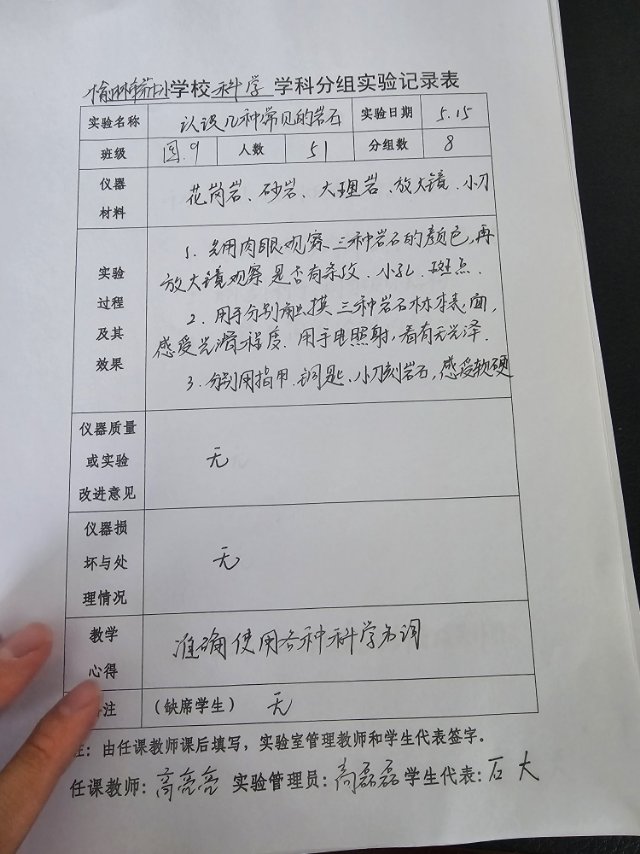 学校 科学 学科分组实验记录表
实验名称 认识几种常见的岩石 实验日期 5.15
班级 四.9 人数 51 分组数 8
仪器 材料 花岗岩、砂岩、大理岩、放大镜、小刀
实验 过程 及其 效果
1. 先用肉眼观察三种岩石的颜色,再
放大镜观察是否有条纹、小孔、斑点.
2. 用手分别触摸三种岩石标本表面,
感受光滑程度. 用手电照射,看有无光泽.
3. 分别用指甲、铜匙、小刀刻岩石,感受软硬
仪器质量 或实验 改进意见 无
仪器损 坏与处 理情况 无
教学 心得 准确使用各种科学名词
注 (缺席学生) 无
:由任课教师课后填写,实验室管理教师和学生代表签字。
任课教师:高亮亮 实验管理员:高磊磊 学生代表:石大